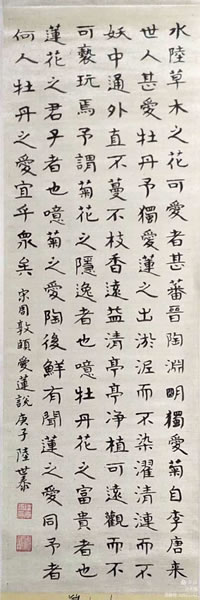 水陸草木之花可愛者甚蕃晉陶淵明獨愛菊自李唐來
世人甚愛牡丹予獨愛蓮之出淤泥而不染濯清漣而不
妖中通外直不蔓不枝香遠益清亭亭净植可遠觀而不
可褻玩焉予謂菊花之隱逸者也噫牡丹花之富貴者也
蓮花之君子者也噫菊之愛陶後鮮有聞蓮之愛同予者
何人牡丹之愛宜乎衆矣 宋周敦頤愛蓮說庚子陸世